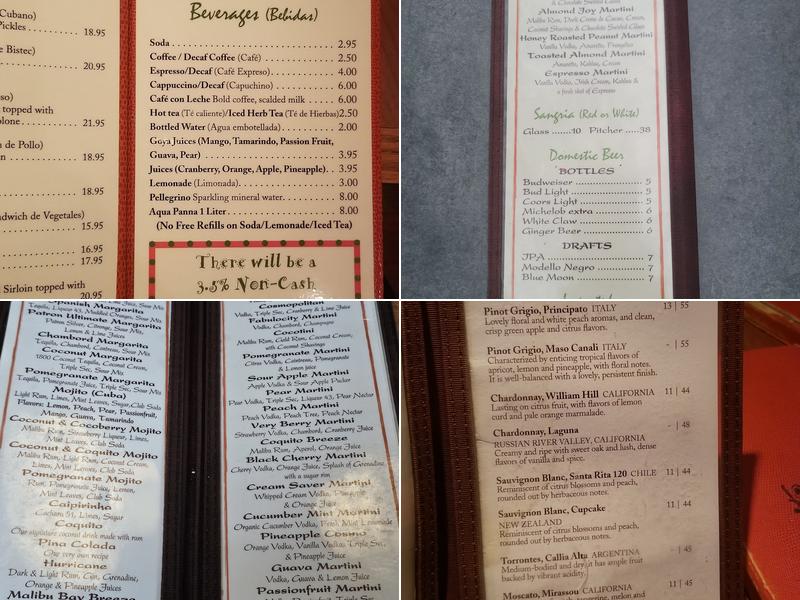 Cubano)
Pickles . 18.95
e Bistec)
20.95
so)
topped with
lone . . . . . . . . . . . 21.95
a de Pollo)
n . . . . . . . . . . . . 18.95
18.95
ndwich de Vegetales)
15.95
16.95
17.95
Sirloin topped with
20.95
Beverages (Bebidas)
Soda 2.95
Coffee / Decaf Coffee (Café) 2.50
Espresso/Decaf (Café Expreso) 4.00
Cappuccino/Decaf (Capuchino) 6.00
Café con Leche Bold coffee, scalded milk 6.00
Hot tea (Té caliente)/Iced Herb Tea (Té de Hierbas)2.50
Bottled Water (Agua embotellada) 2.00
Goya Juices (Mango, Tamarindo, Passion Fruit,
Guava, Pear) 3.95
Juices (Cranberry, Orange, Apple, Pineapple) 3.95
Lemonade (Limonada) 3.00
Pellegrino Sparkling mineral water 8.00
Aqua Panna 1 Liter 8.00
(No Free Refills on Soda/Lemonade/Iced Tea)
There will be a
3.5% Non-Cash
& Chocolate Swirled Glass
Almond Joy Martini
Malibu Rum, Dark Creme de Cacao, Cream,
Coconut Shavings & Chocolate Swirled Glass
Honey Roasted Peanut Martini
Vanilla Vodka, Amaretto, Frangelico
Toasted Almond Martini
Amaretto, Kahlua, Cream
Espresso Martini
Vanilla Vodka, Irish Cream, Kahlua &
a fresh shot of Espresso
Sangria (Red or White)
Glass ......10 Pitcher .....38
Domestic Beer
BOTTLES
Budweiser 5
Bud Light 5
Coors Light 5
Michelob extra 6
White Claw 6
Ginger Beer 6
DRAFTS
IPA 7
Modello Negro 7
Blue Moon 7
Spanish Margarita
Tequila, Liqueur 43, Muddled Oranges, Sour Mix
Patron Ultimate Margarita
Patron Silver, Citronge, Sour Mix,
Lemon & Lime Juices
Chambord Margarita
Tequila, Chambord, Cointreau, Sour Mix
Coconut Margarita
1800 Coconut Tequila, Coconut Cream,
Triple Sec, Sour Mix
Pomegranate Margarita
Tequila, Pomegranate Juice, Triple Sec, Sour Mix
Mojito (Cuba)
Light Rum, Limes, Mint Leaves, Sugar, Club Soda
Flavors: Lemon, Peach, Pear, Passionfruit,
Mango, Guava, Tamarindo
Coconut & Cocoberry Mojito
Malibu Rum, Blueberries, Limes,
Mint Leaves, Club Soda
Coconut & Coquito Mojito
Malibu Rum, Light Rum, Coconut Cream,
Limes, Mint Leaves, Club Soda
Pomegranate Mojito
Rum, Pomegranate Juice, Lemon,
Mint Leaves, Club Soda
Caipirinha
Cachaza 51, Limes, Sugar
Coquito
Our signature coconut drink made with rum
Pina Colada
Our very own recipe
Hurricane
Dark & Light Rum, Gin, Grenadine,
Orange & Pineapple Juices
Malibu Bay Breeze
Cosmopolitan
Vodka, Triple Sec, Cranberry & Lime Juice
Fabulocity Martini
Vodka, Chambord, Champagne
Cocotini
Malibu Rum, Gold Rum, Coconut Cream,
with Coconut Shavings
Pomegranate Martini
Citrus Vodka, Cointreau, Pomegranate
& Lemon juice
Sour Apple Martini
Apple Vodka & Sour Apple Pucker
Pear Martini
Pear Vodka, Triple Sec, Liqueur 43, Pear Nectar
Peach Martini
Peach Vodka, Peach Tree, Peach Nectar
Very Berry Martini
Strawberry Vodka, Chambord, Cranberry Juice
Coquito Breeze
Malibu Rum, Aperol, Orange Juice
Black Cherry Martini
Cherry Vodka, Orange Juice, Splash of Grenadine
with a sugar rim
Cream Saver Martini
Whipped Cream Vodka, Pineapple
& Orange Juice
Cucumber Mint Martini
Organic Cucumber Vodka, Fresh Mint Lemonade
Pineapple Cosmo
Orange Vodka, Vanilla Vodka, Triple Sec,
& Pineapple Juice
Guava Martini
Vodka, Guava & Lemon Juice
Passionfruit Martini
Pinot Grigio, Principato ITALY 13 | 55
Lovely floral and white peach aromas, and clean,
crisp green apple and citrus flavors.
Pinot Grigio, Maso Canali ITALY - | 55
Characterized by enticing tropical flavors of
apricot, lemon and pineapple, with floral notes.
It is well-balanced with a lovely, persistent finish.
Chardonnay, William Hill CALIFORNIA 11 | 44
Lasting on citrus fruit, with flavors of lemon
curd and pale orange marmalade.
Chardonnay, Laguna - | 48
RUSSIAN RIVER VALLEY, CALIFORNIA
Creamy and ripe with sweet oak and lush, dense
flavors of vanilla and spice.
Sauvignon Blanc, Santa Rita 120 CHILE 11 | 44
Reminiscent of citrus blossoms and peach,
rounded out by herbaceous notes.
Sauvignon Blanc, Cupcake 11 | 44
NEW ZEALAND
Reminiscent of citrus blossoms and peach,
rounded out by herbaceous notes.
Torrontes, Callia Alta ARGENTINA - | 45
Medium-bodied and dry, it has ample fruit
backed by vibrant acidity.
Moscato, Mirassou CALIFORNIA 11 | 45